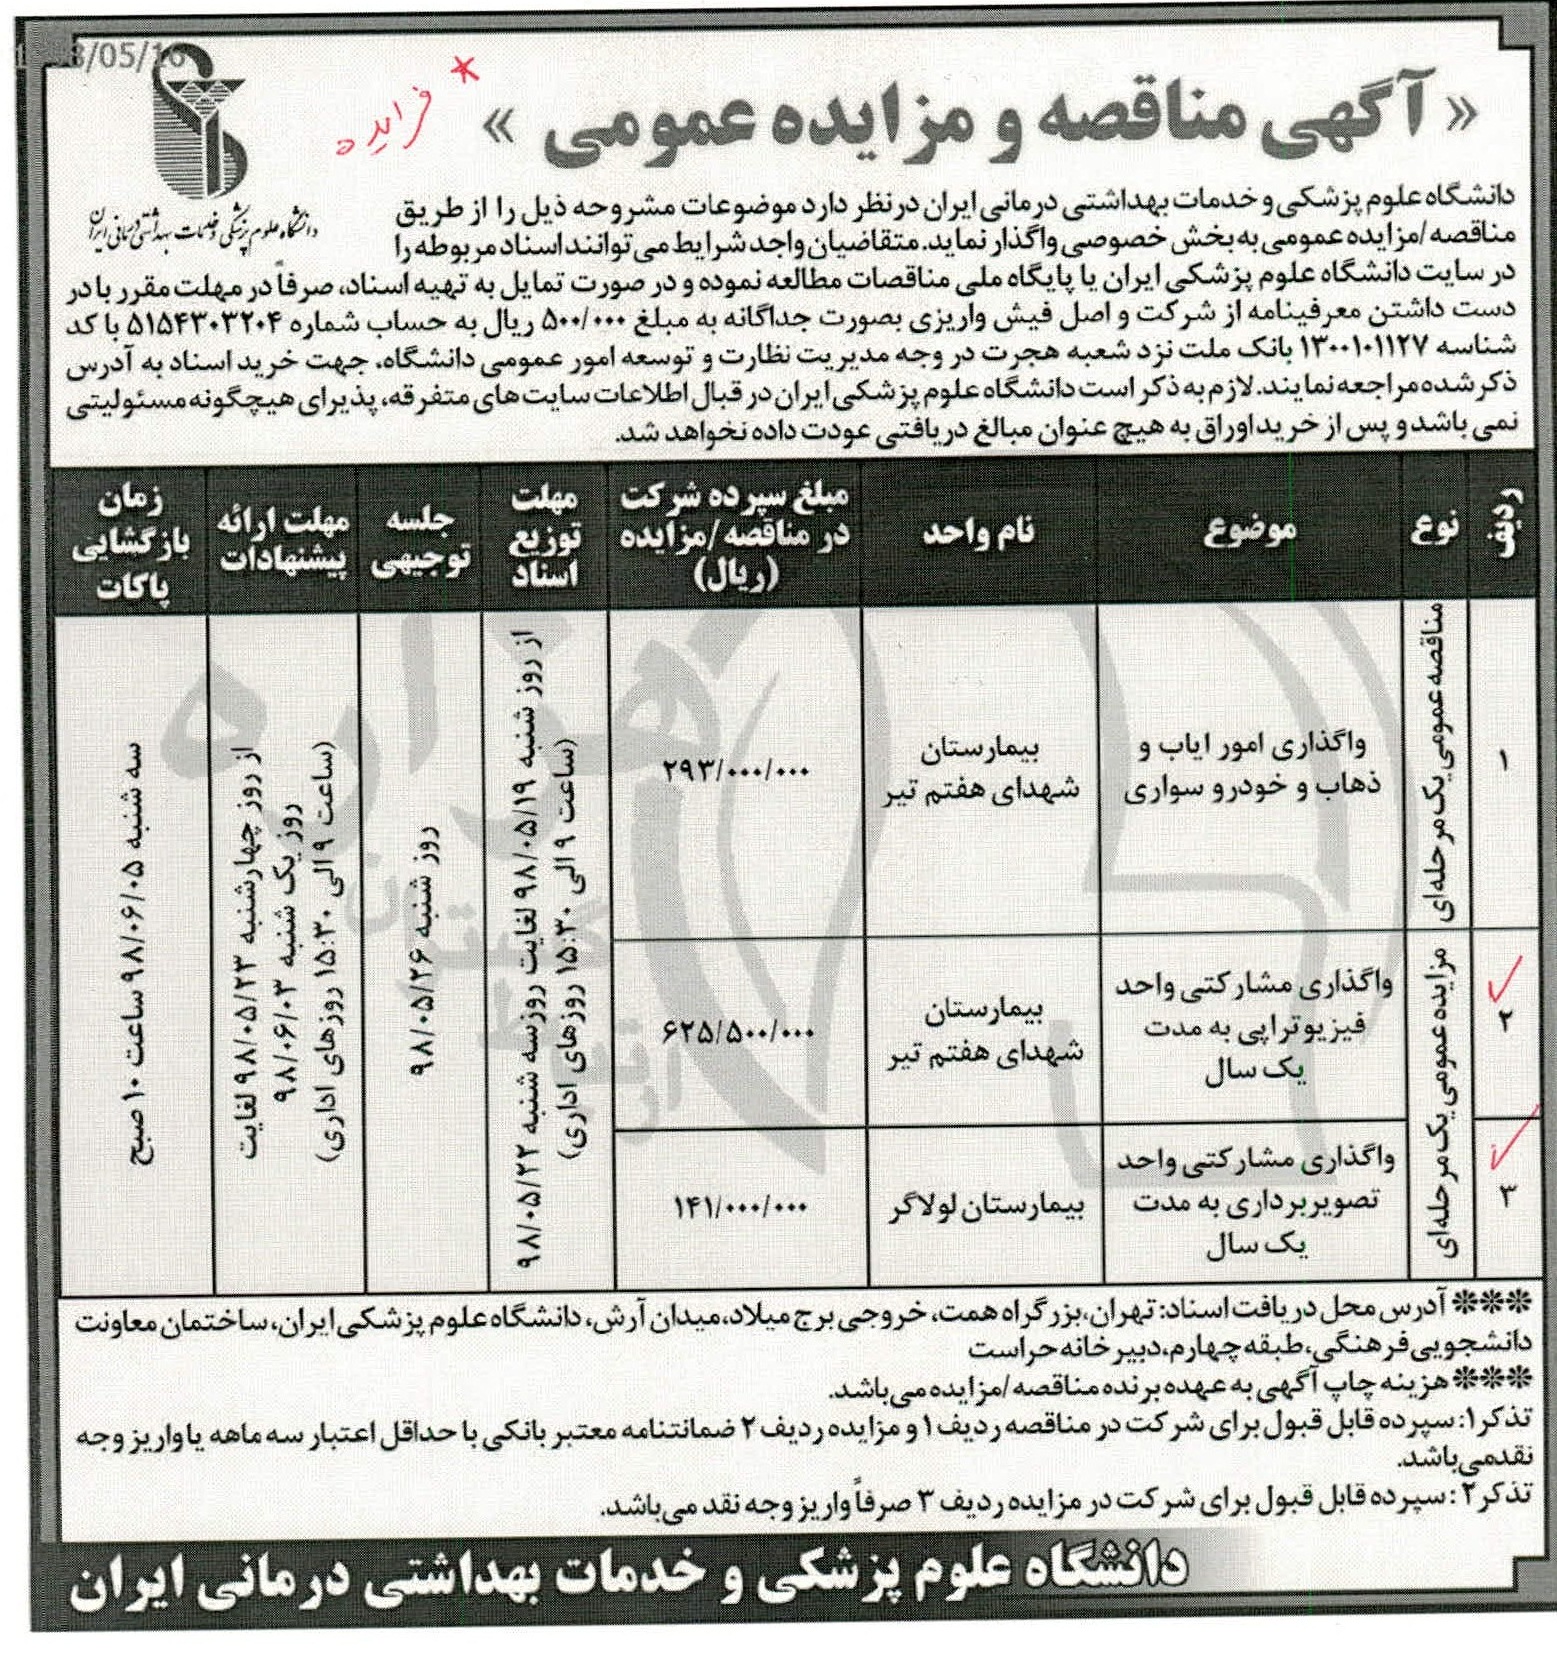 1398/05/16
« آگهی مناقصه و مزایده عمومی »
دانشگاه علوم پزشکی و خدمات بهداشتی درمانی ایران
دانشگاه علوم پزشکی و خدمات بهداشتی درمانی ایران در نظر دارد موضوعات مشروحه ذیل را از طریق
مناقصه/مزایده عمومی به بخش خصوصی واگذار نماید. متقاضیان واجد شرایط می توانند اسناد مربوطه را
در سایت دانشگاه علوم پزشکی ایران یا پایگاه ملی مناقصات مطالعه نموده و در صورت تمایل به تهیه اسناد، صرفاً در مهلت مقرر با در
دست داشتن معرفینامه از شرکت و اصل فیش واریزی بصورت جداگانه به مبلغ ۵۰۰/۰۰۰ ریال به حساب شماره ۵۱۵۴۳۰۳۲۰۴ با کد
شناسه ۱۳۰۰۱۰۱۱۲۷ بانک ملت نزد شعبه هجرت در وجه مدیریت نظارت و توسعه امور عمومی دانشگاه، جهت خرید اسناد به آدرس
ذکر شده مراجعه نمایند. لازم به ذکر است دانشگاه علوم پزشکی ایران در قبال اطلاعات سایت های متفرقه، پذیرای هیچگونه مسئولیتی
نمی باشد و پس از خرید اوراق به هیچ عنوان مبالغ دریافتی عودت داده نخواهد شد.
ردیف
نوع
موضوع
نام واحد
مبلغ سپرده شرکت
در مناقصه/مزایده
(ریال)
مهلت
توزیع
اسناد
جلسه
توجیهی
مهلت ارائه
پیشنهادات
زمان
بازگشایی
پاکات
۱
مناقصه عمومی یک مرحله‌ای
واگذاری امور ایاب و
ذهاب و خودرو سواری
بیمارستان
شهدای هفتم تیر
۲۹۳/۰۰۰/۰۰۰
از روز شنبه ۹۸/۰۵/۱۹ لغایت روز سه شنبه ۹۸/۰۵/۲۲
(ساعت ۹ الی ۱۵:۳۰ روزهای اداری)
روز شنبه ۹۸/۰۵/۲۶
از روز چهارشنبه ۹۸/۰۵/۲۳ لغایت
روز یک شنبه ۹۸/۰۶/۰۳
(ساعت ۹ الی ۱۵:۳۰ روزهای اداری)
سه شنبه ۹۸/۰۶/۰۵ ساعت ۱۰ صبح
۲
مزایده عمومی یک مرحله‌ای
واگذاری مشارکتی واحد
فیزیوتراپی به مدت
یک سال
بیمارستان
شهدای هفتم تیر
۶۲۵/۵۰۰/۰۰۰
۳
واگذاری مشارکتی واحد
تصویربرداری به مدت
یک سال
بیمارستان لولاگر
۱۴۱/۰۰۰/۰۰۰
*** آدرس محل دریافت اسناد: تهران، بزرگراه همت، خروجی برج میلاد، میدان آرش، دانشگاه علوم پزشکی ایران، ساختمان معاونت
دانشجویی فرهنگی، طبقه چهارم، دبیرخانه حراست
*** هزینه چاپ آگهی به عهده برنده مناقصه/مزایده می باشد.
تذکر۱: سپرده قابل قبول برای شرکت در مناقصه ردیف ۱ و مزایده ردیف ۲ ضمانتنامه معتبر بانکی با حداقل اعتبار سه ماهه یا واریز وجه
نقد می باشد.
تذکر۲: سپرده قابل قبول برای شرکت در مزایده ردیف ۳ صرفاً واریز وجه نقد می باشد.
دانشگاه علوم پزشکی و خدمات بهداشتی درمانی ایران